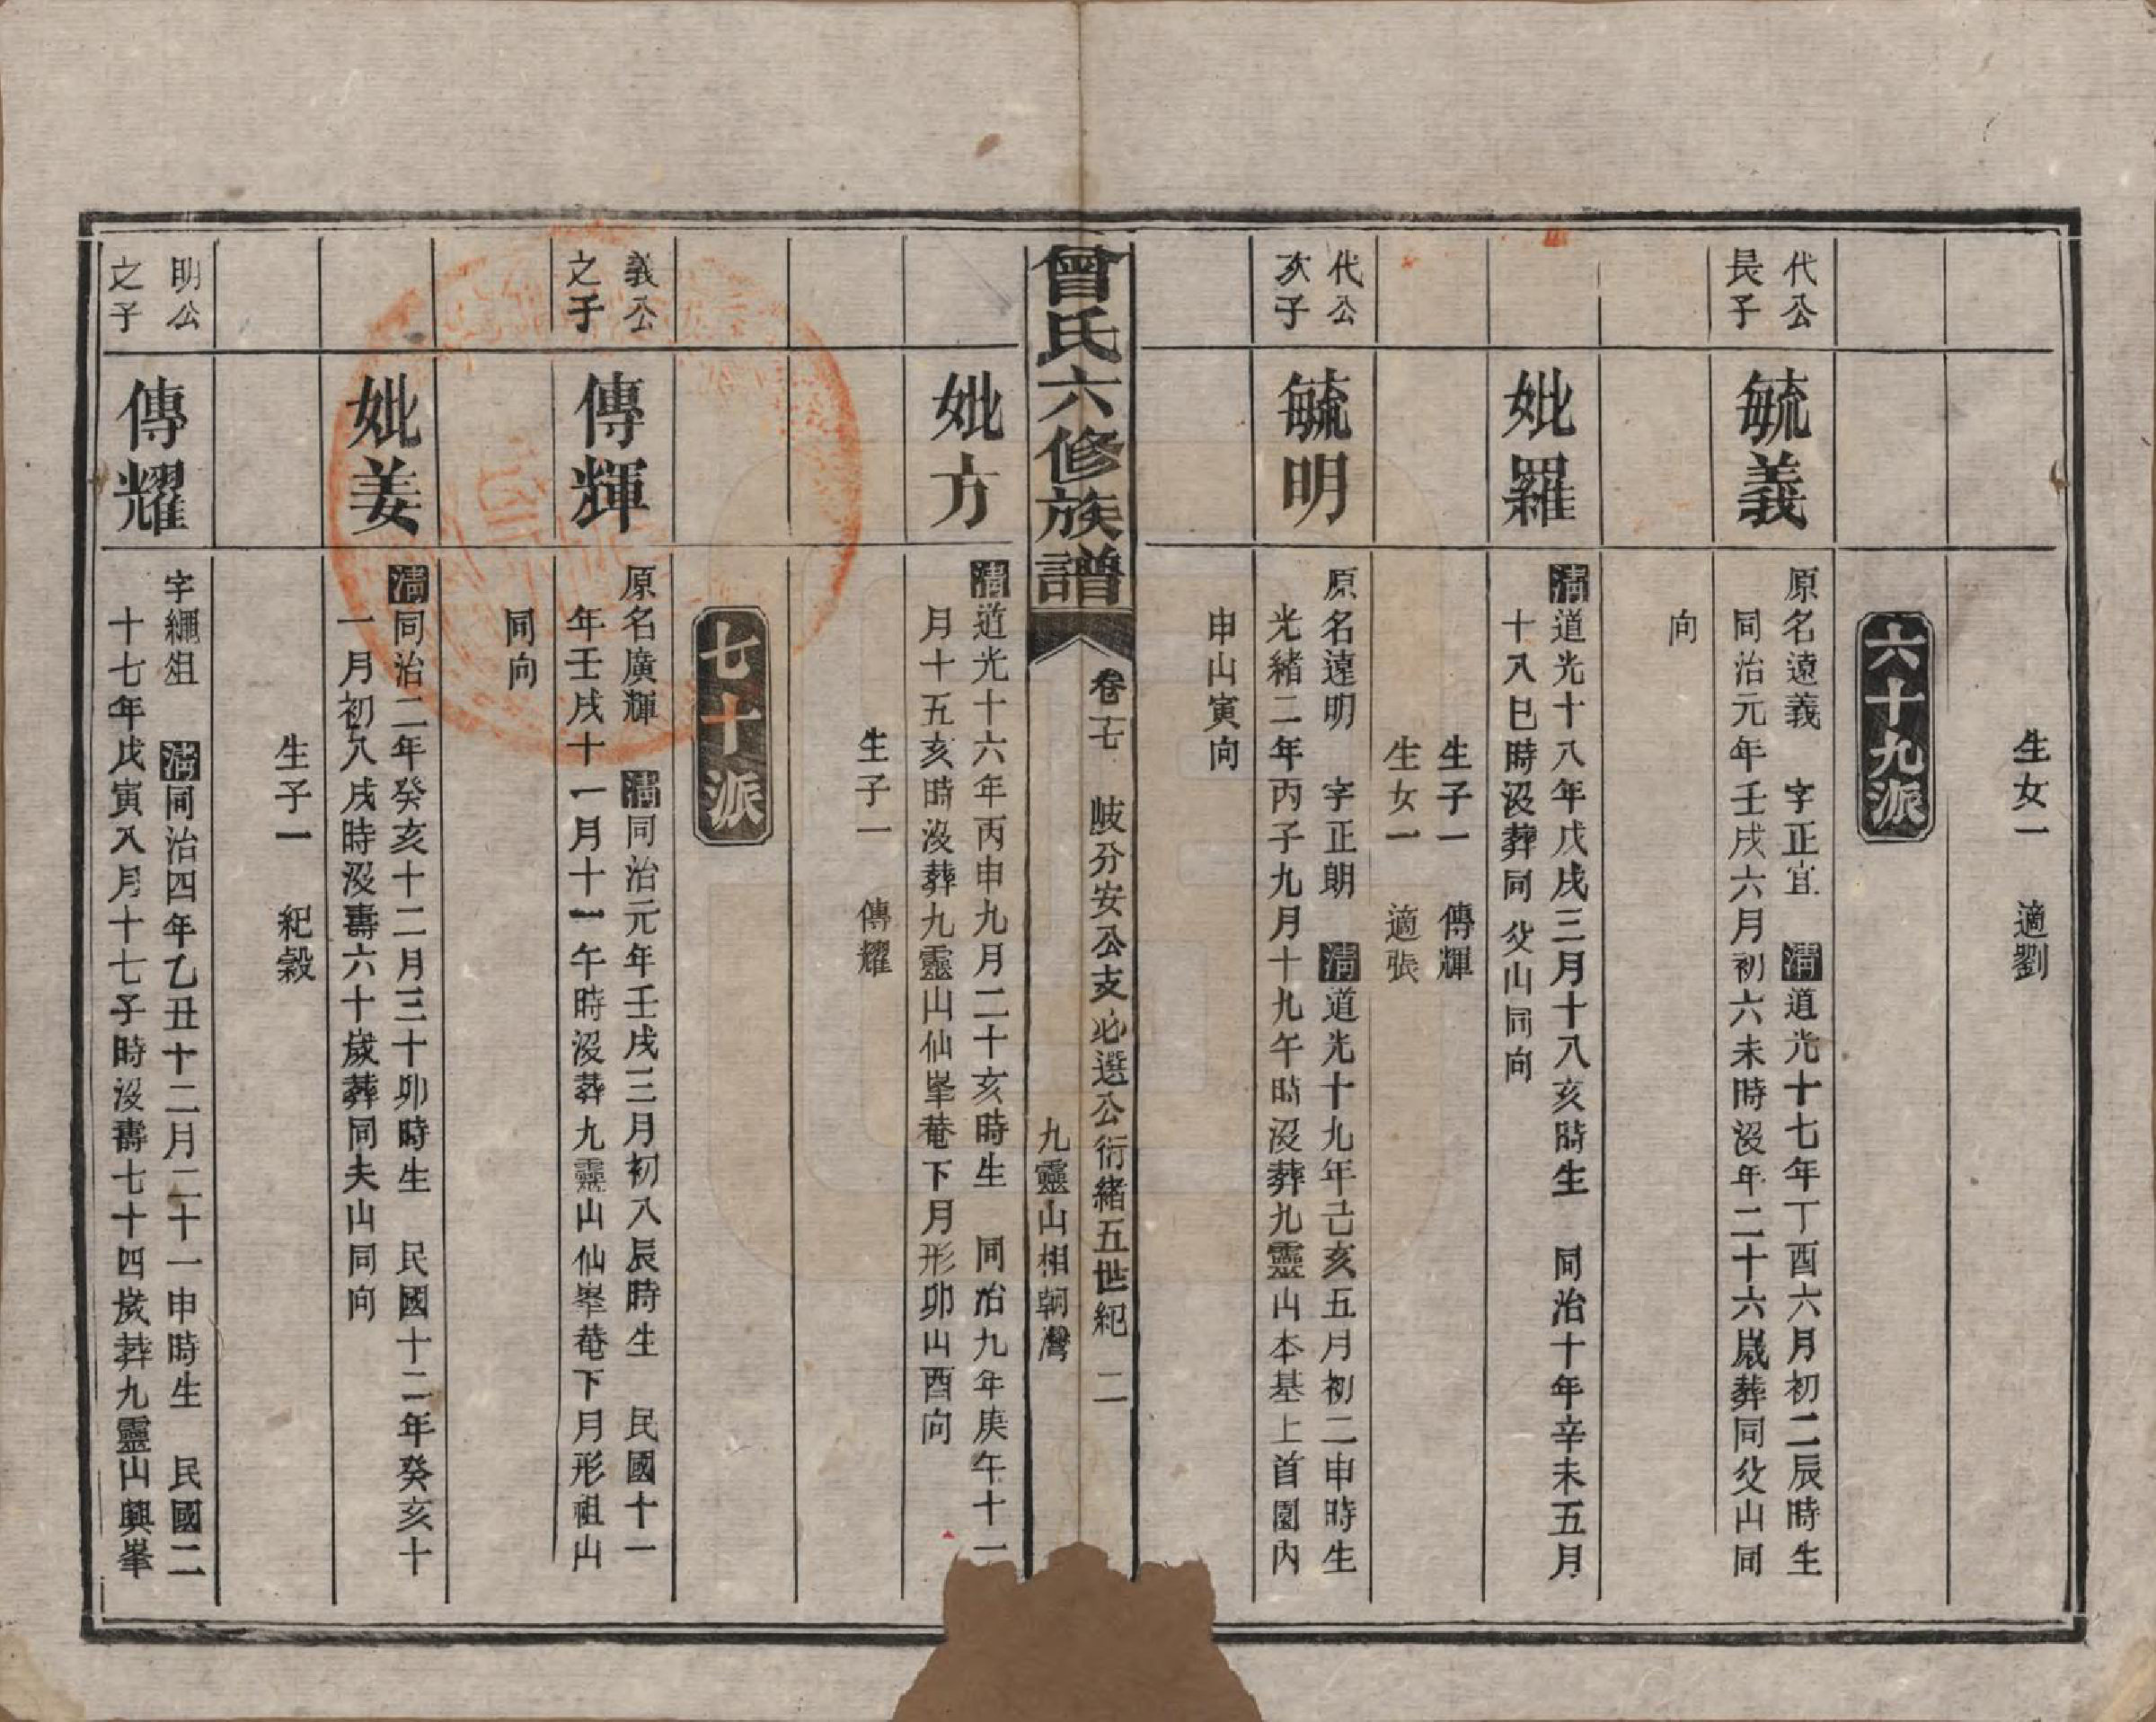 生女一　適劉
六十九派
代公
長子
毓義
原名遠義　字正宜　清道光十七年丁酉六月初二辰時生
同治元年壬戌六月初六未時沒年二十六歲葬同父山同
向
妣羅
清道光十八年戊戌三月十八亥時生　同治十年辛未五月
十八巳時沒葬同父山同向
生子一　傳輝
生女一　適張
代公
次子
毓明
原名遠明　字正朗　清道光十九年己亥五月初二申時生
光緒二年丙子九月十九午時沒葬九靈山本基上首園內
申山寅向
曾氏六修族譜
卷十七　岐分安公支必選公衍緒五世紀　二
九靈山相朝灣
妣方
清道光十六年丙申九月二十亥時生　同治九年庚午十一
月十五亥時沒葬九靈山仙峯菴下月形卯山酉向
生子一　傳耀
七十派
義公
之子
傳輝
原名廣輝　清同治元年壬戌三月初八辰時生　民國十一
年壬戌十一月十一午時沒葬九靈山仙峯菴下月形祖山
同向
妣姜
清同治二年癸亥十二月三十卯時生　民國十二年癸亥十
一月初八戌時沒壽六十歲葬同夫山同向
生子一　紀穀
明公
之子
傳耀
字繩俎　清同治四年乙丑十二月二十一申時生　民國二
十七年戊寅八月十七子時沒壽七十四歲葬九靈山興峯